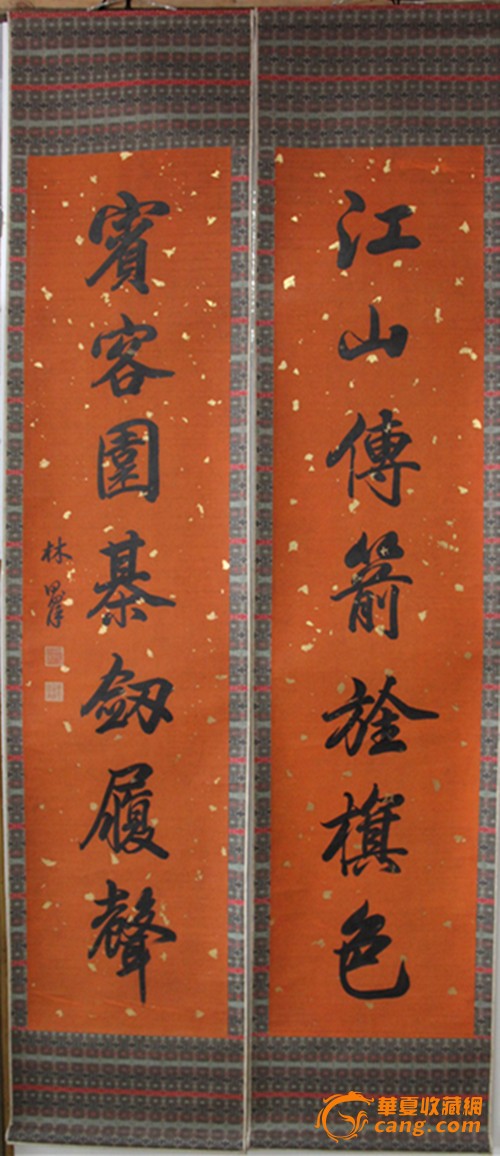 江山傳箭旌旗色
賓客圍棊劔履聲
林
華夏收藏網
cang.com